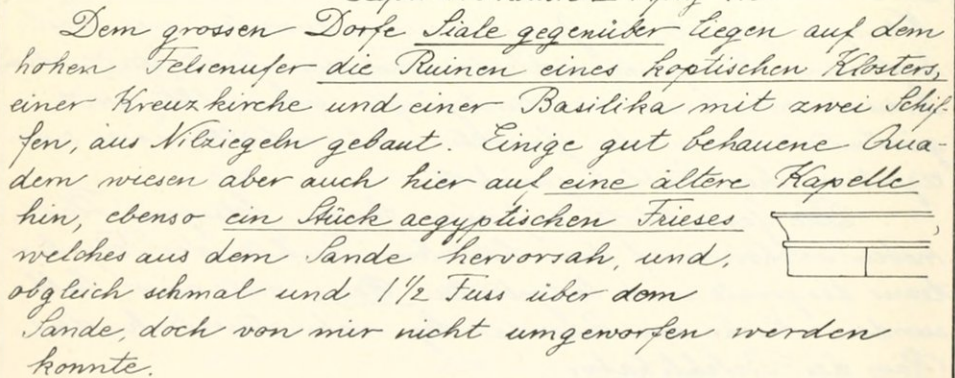 Dem grossen Dorfe Siale gegenüber liegen auf dem
hohen Felsenufer die Ruinen eines koptischen Klosters,
einer Kreuzkirche und einer Basilika mit zwei Schif-
fen, aus Nilziegeln gebaut. Einige gut behauene Qua-
dern wiesen aber auch hier auf eine ältere Kapelle
hin, ebenso ein Stück aegyptischen Frieses
welches aus dem Sande hervorsah, und,
obgleich schmal und 1½ Fuss über dem
Sande, doch von mir nicht umgeworfen werden
konnte.